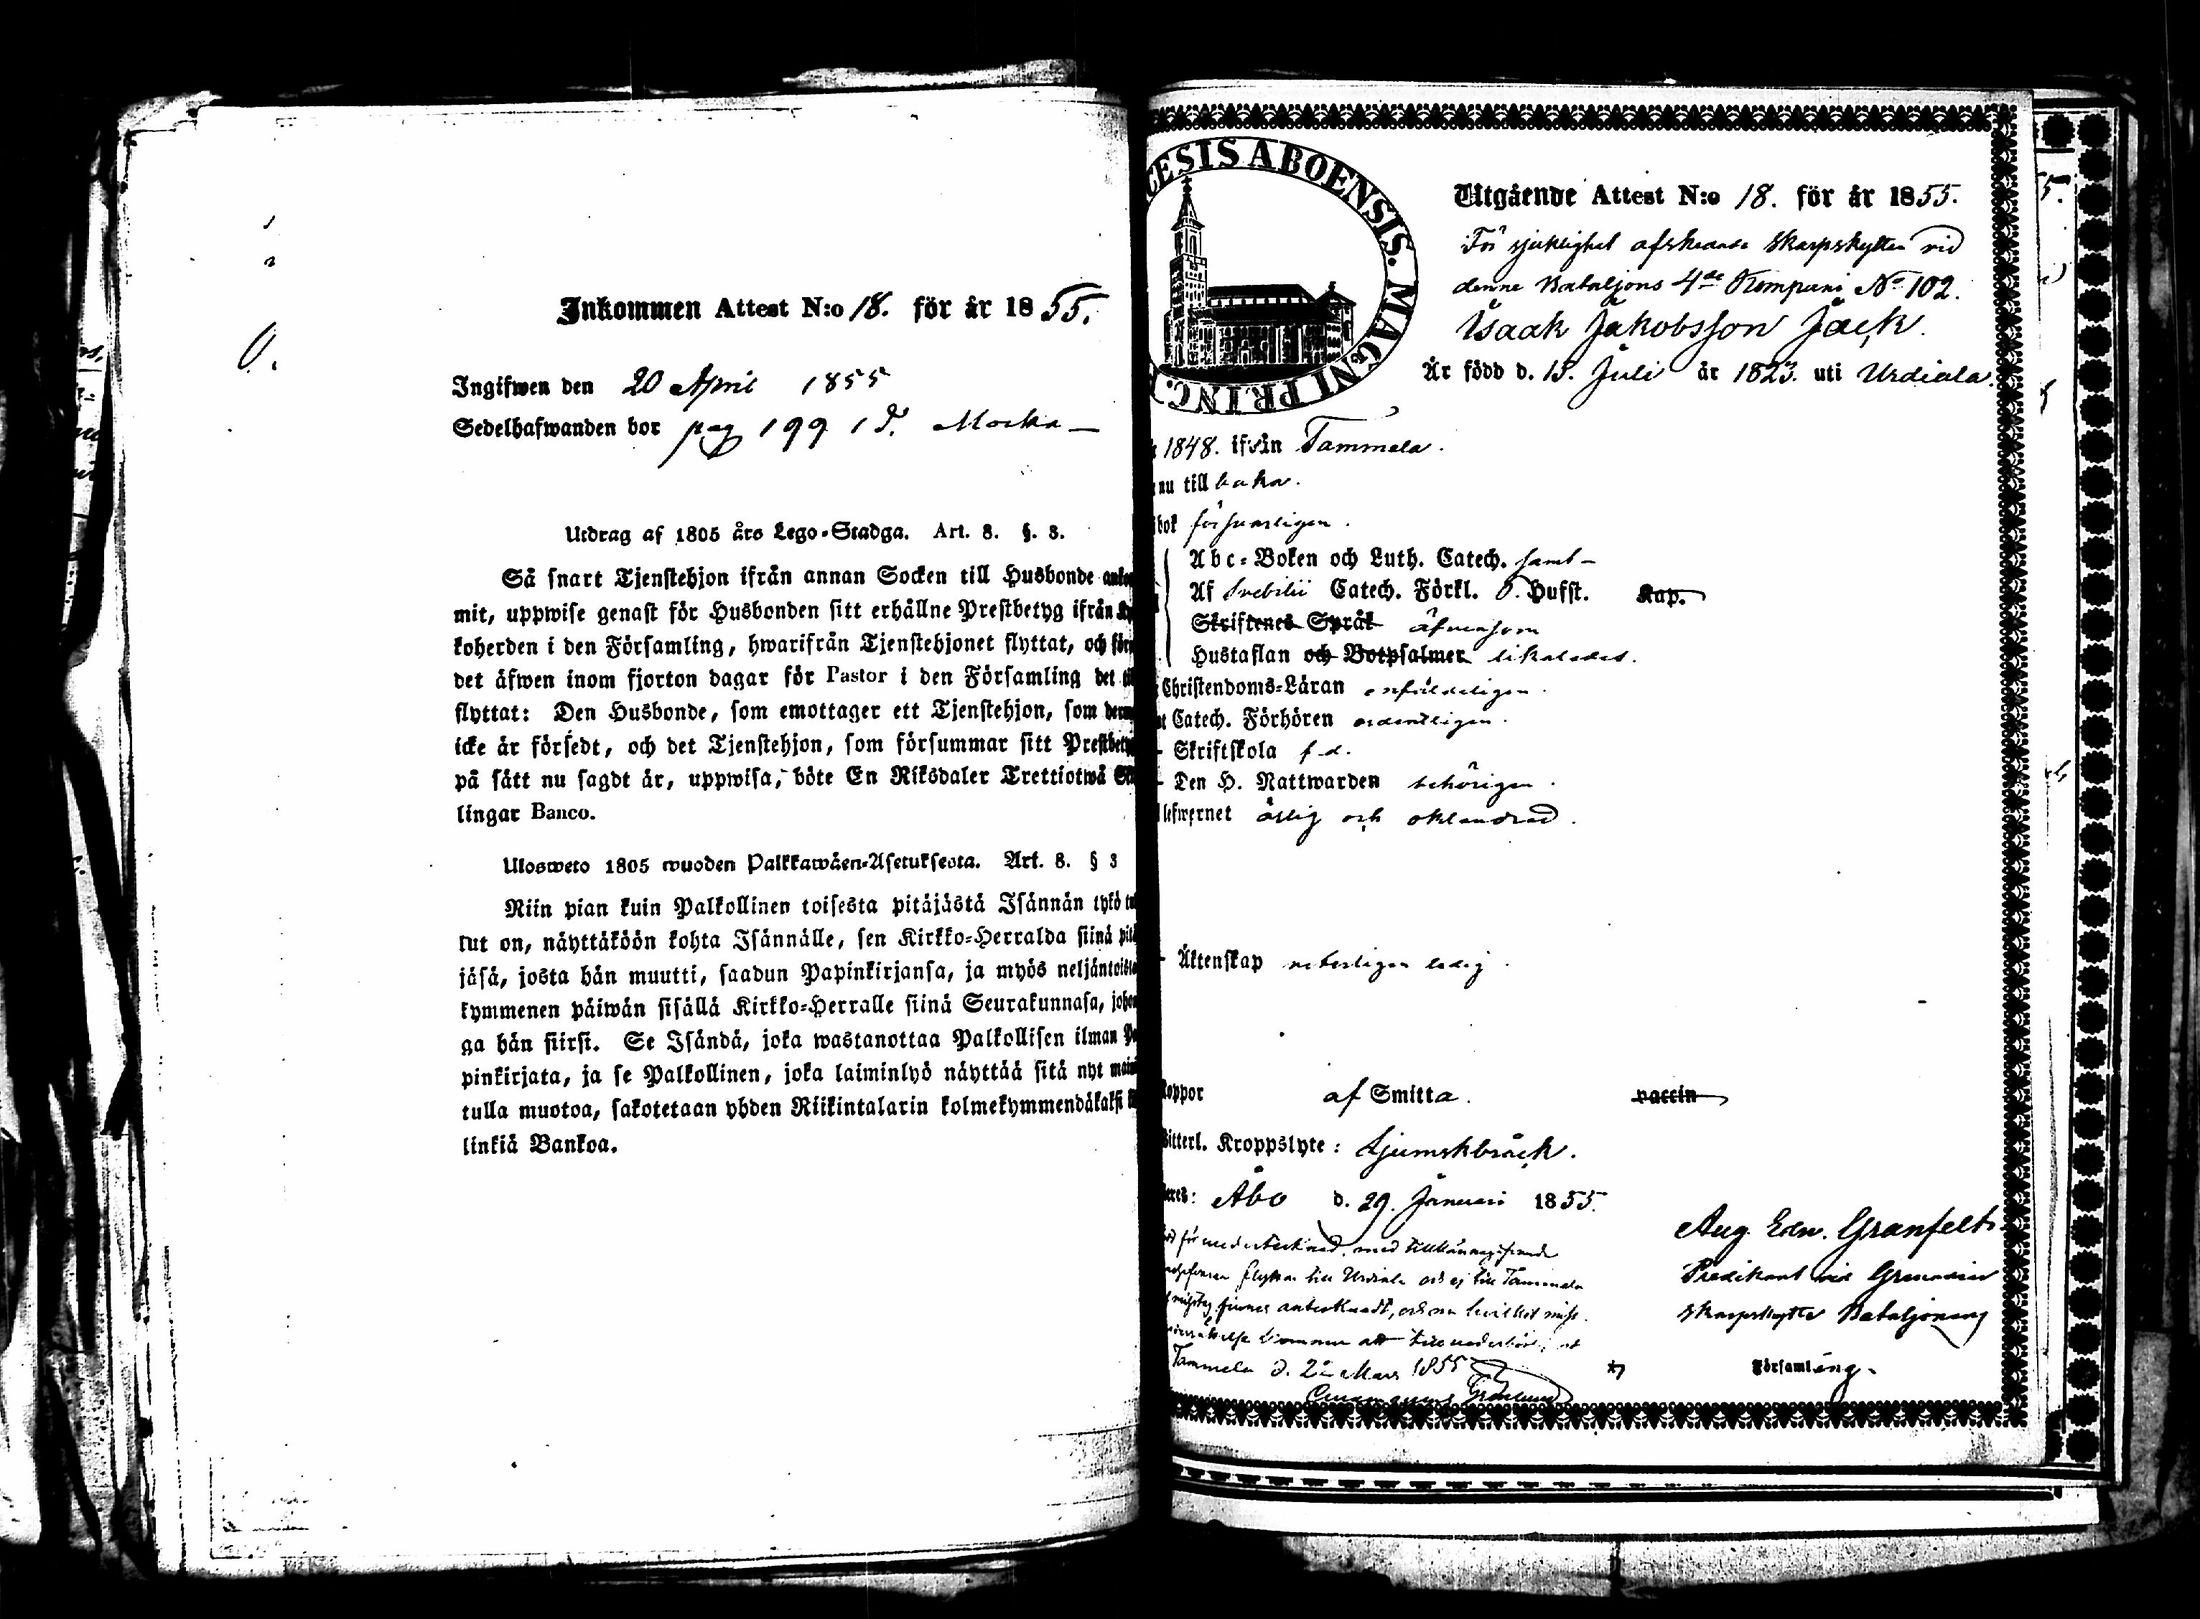 Inkommen Attest N:o 18. för år 1855.
Ingifwen den 20 April 1855
Sedelhafwanden bor pag 199
Utdrag af 1805 års Lego-Stadga. Art. 8. §. 3.
Så snart Tjenstehjon ifrån annan Socken till Husbonde
mit, uppwise genast för Husbonden sitt erhållne Prestbetyg ifrån
koherden i den Församling, hwarifrån Tjenstehjonet flyttat, och
det äfwen inom fjorton dagar för Pastor i den Församling det
flyttat: Den Husbonde, som emottager ett Tjenstehjon, som
icke är försedt, och det Tjenstehjon, som försummar sitt
på sätt nu sagdt är, uppwisa, böte En Riksdaler Trettiotwå
lingar Banco.
Ulosweto 1805 wuoden Palkkawäen-Asetuksesta. Art. 8. § 3
Niin pian kuin Palkollinen toisesta pitäjästä Isännän tykö
lut on, näyttäköön kohta Isännälle, sen Kirkko-Herralda siinä
jäsä, josta hän muutti, saadun Papinkirjansa, ja myös
kymmenen päiwän sisällä Kirkko-Herralle siinä Seurakunnasa,
ga hän siirsi. Se Isändä, joka wastanottaa Palkollisen ilman
pinkirjata, ja se Palkollinen, joka laiminlyö näyttää sitä nyt
tulla muotoa, sakotetaan yhden Riikintalarin kolmekymmendäkaksi
linkiä Bankoa.
CESIS ABOENSIS. MAGNI PRINC.
Utgående Attest N:o 18. för år 1855.
För sjuklighet afskedade Skarpskytten vid
denne Bataljons 4de Kompani No 102.
Isaak Jakobsson Jäck.
Är född d. 15. Juli år 1823. uti Urdiala.
1848. ifrån Tammela.
nu till baka.
bok försvarligen.
Abc-Boken och Luth. Catech. samt
Af Svebilii Catech. Förkl. Hufst. Kap.
Skriftenes Språk äfvensom
Hustaflan och Botpsalmer likaledes.
Christendoms-Läran enfaldeligen.
Catech. Förhören ordentligen.
Skriftskola f.d.
Den H. Nattwarden behörigen.
lefwernet ärlig och oklandrad.
Äktenskap veterligen ledig.
koppor af Smitta. vaccin
Witterl. Kroppslyte: Ljumskbråck.
Åbo d. 29. Januari 1855.
Aug. Edv. Granfelt.
Predikant vid Grenadier
Skarpskytte Bataljonens
Församling.
flyttar till Urdiala och ej till Tammela
Tammela d. 22 Mars 1855